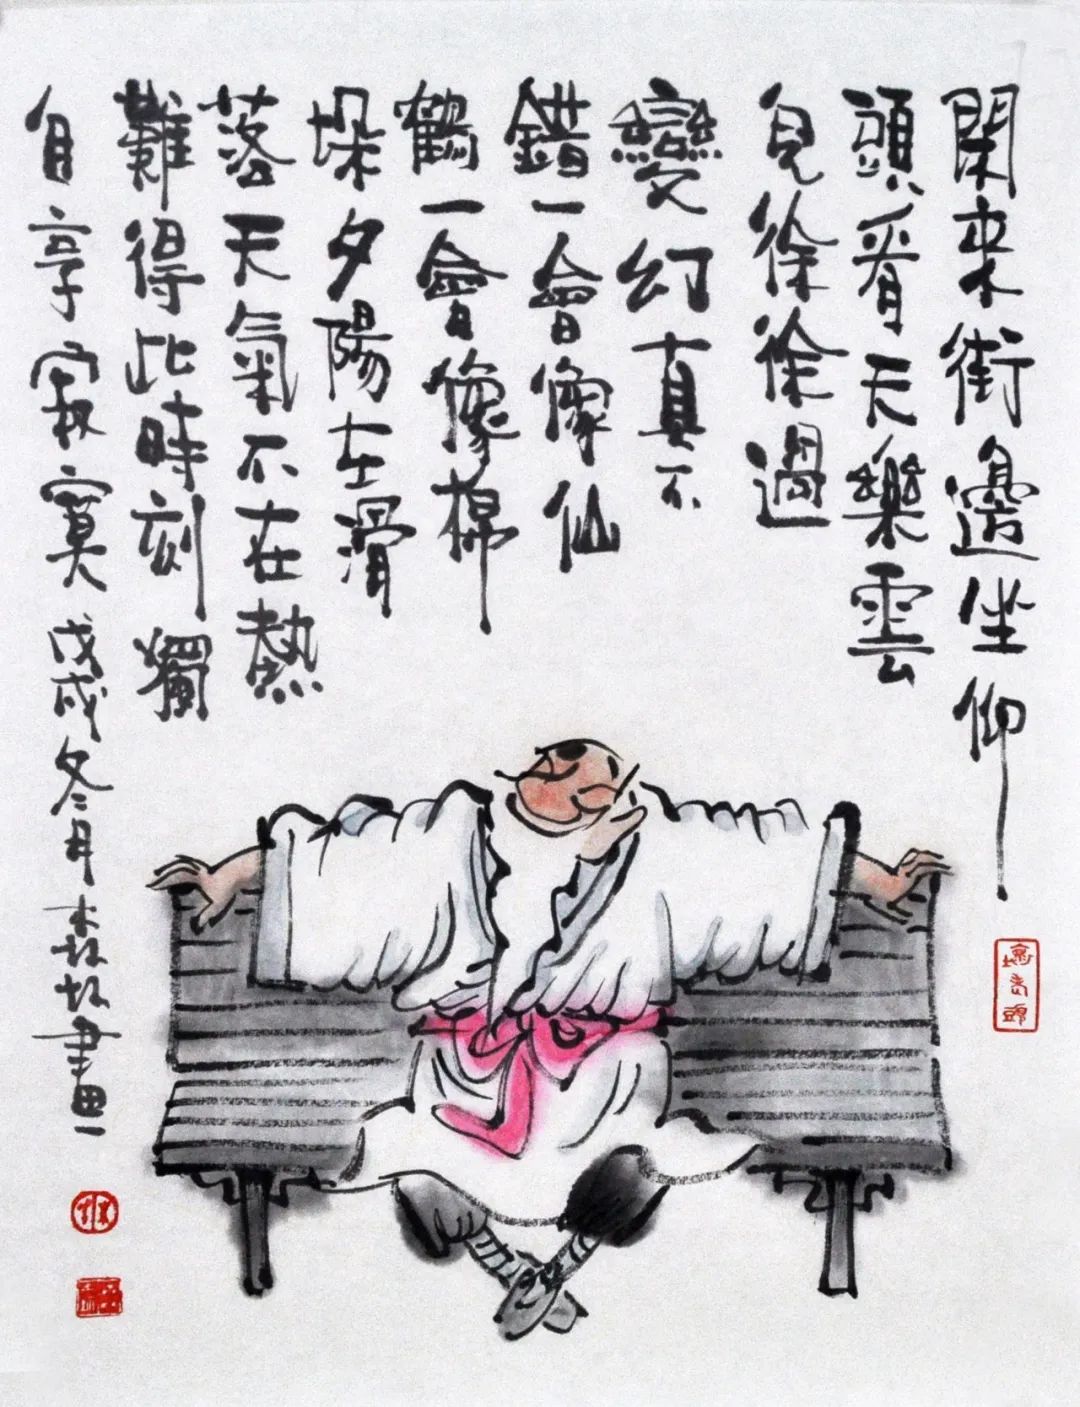 閑來街邊坐仰
頭看天樂雲
兒徐徐過
變幻真不
錯一會像仙
鶴一會像棉
垛夕陽在滑
落天氣不在熱
難得此時刻獨
自享寂寞戊戌冬月森林畫